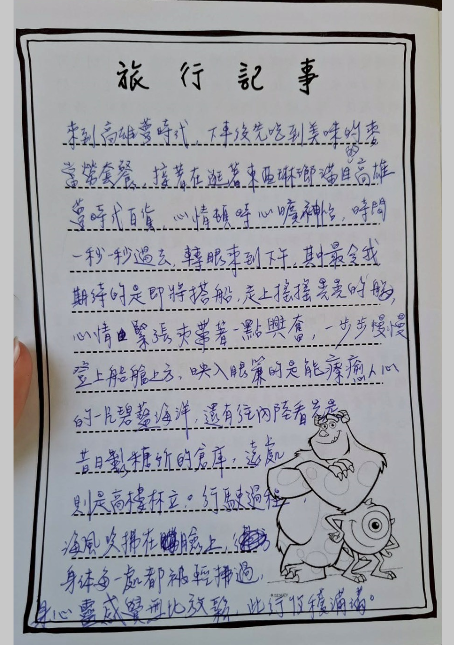 旅行記事
來到高雄夢時代,下車後先吃到美味的麥
當勞套餐,接著在逛著東西琳瑯滿目的高雄
夢時代百貨,心情頓時心曠神怡,時間
一秒一秒過去,轉眼來到下午,其中最令我
期待的是即將搭船,走上搖搖晃晃的船,
心情由緊張夾帶著一點興奮,一步步慢慢
登上船艙上方,映入眼簾的是能療癒人心
的一片碧藍海洋,還有往內陸看先是
昔日製糖所的倉庫,遠處
則是高樓林立。行駛過程
海風吹拂在臉上,
身體每一處都被輕拂過,
身心靈感覺無比放鬆,此行收穫滿滿。